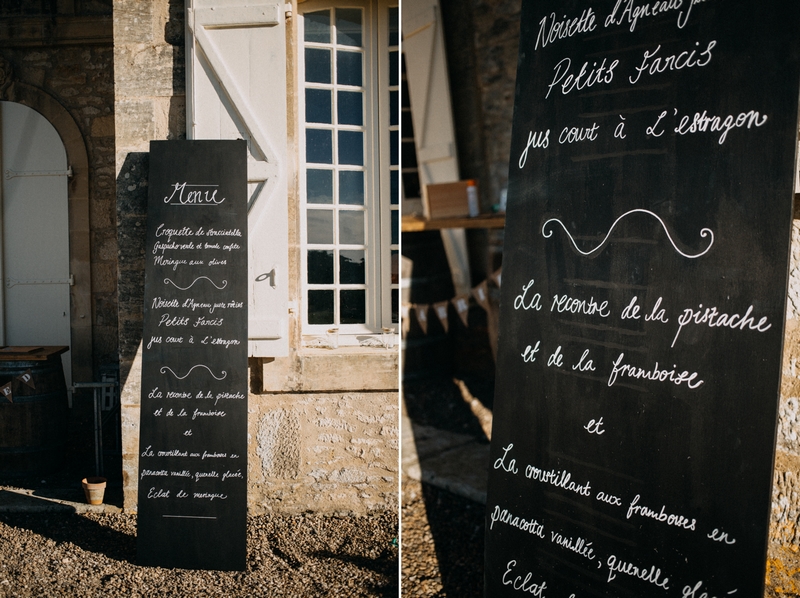 Menu
Croquette de
Gaspacho verte et tomate confite
Meringue aux olives
Noisette d'Agneau juste rôtie
Petits Farcis
jus court à L'estragon
La recontre de la pistache
et de la framboise
et
La croustillant aux framboises en
panacotta vanillée, quenelle glacée,
Eclat de meringue
Noisette d'Agneau
Petits Farcis
jus court à L'estragon
La recontre de la pistache
et de la framboise
et
La croustillant aux framboises en
panacotta vanillée, quenelle glacé
Eclat